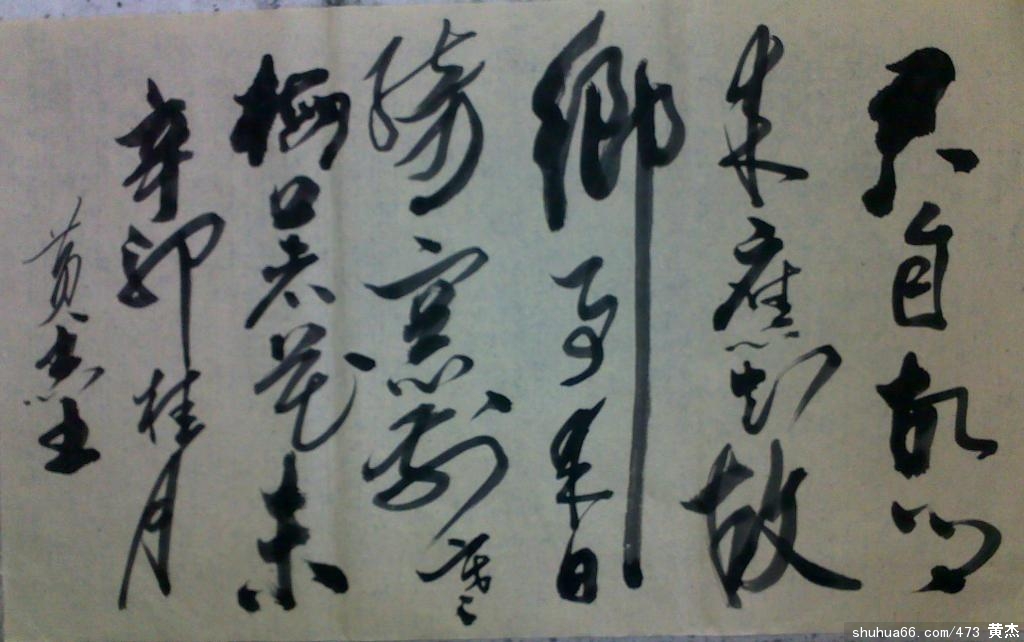 君自故乡
来應知故
鄉事来日
绮窓前寒
梅著花未
辛卯桂月
黄杰
shuhua66.com/473 黄杰